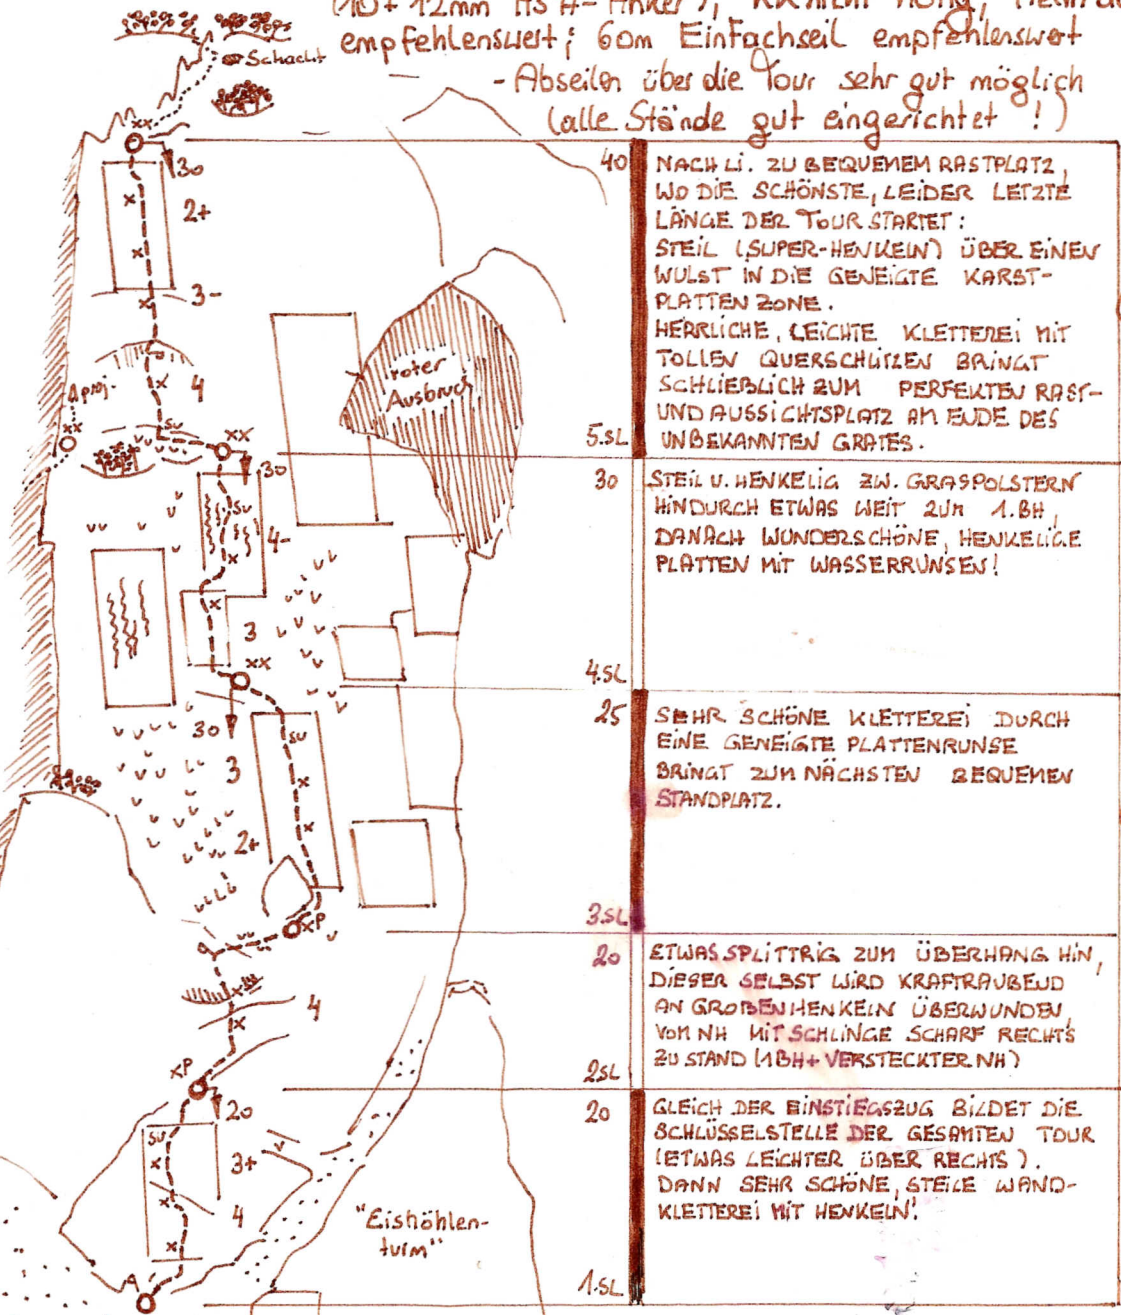 (10+12mm HSA-Anker),
empfehlenswert; 60m Einfachseil empfehlenswert
- Abseilen über die Tour sehr gut möglich
(alle Stände gut eingerichtet !)
Schacht
xx
30
2+
3-
4
A proj.
xx
su
xx
roter
Ausbruch
30
su
4-
3
xx
30
su
3
2+
xP
4
xP
20
su
3+
4
"Eishöhlen-
turm"
40
NACH LI. ZU BEQUEMEM RASTPLATZ,
WO DIE SCHÖNSTE, LEIDER LETZTE
LÄNGE DER TOUR STARTET:
STEIL (SUPER-HENKELN) ÜBER EINEN
WULST IN DIE GENEIGTE KARST-
PLATTENZONE.
HERRLICHE, LEICHTE KLETTEREI MIT
TOLLEN QUERSCHLITZEN BRINGT
SCHLIEßLICH ZUM PERFEKTEN RAST-
UND AUSSICHTSPLATZ AM ENDE DES
5.SL UNBEKANNTEN GRATES.
30
STEIL U. HENKELIG ZW. GRASPOLSTERN
HINDURCH ETWAS WEIT ZUM 1.BH,
DANACH WUNDERSCHÖNE, HENKELIGE
PLATTEN MIT WASSERRUNSEN!
4.SL
25
SEHR SCHÖNE KLETTEREI DURCH
EINE GENEIGTE PLATTENRUNSE
BRINGT ZUM NÄCHSTEN BEQUEMEN
STANDPLATZ.
3.SL
20
ETWAS SPLITTRIG ZUM ÜBERHANG HIN,
DIESER SELBST WIRD KRAFTRAUBEND
AN GROßEN HENKELN ÜBERWUNDEN,
VOM NH MIT SCHLINGE SCHARF RECHTS
ZU STAND (1BH+VERSTECKTER NH)
2SL
20
GLEICH DER EINSTIEGSZUG BILDET DIE
SCHLÜSSELSTELLE DER GESAMTEN TOUR
(ETWAS LEICHTER ÜBER RECHTS).
DANN SEHR SCHÖNE, STEILE WAND-
KLETTEREI MIT HENKELN!
1.SL